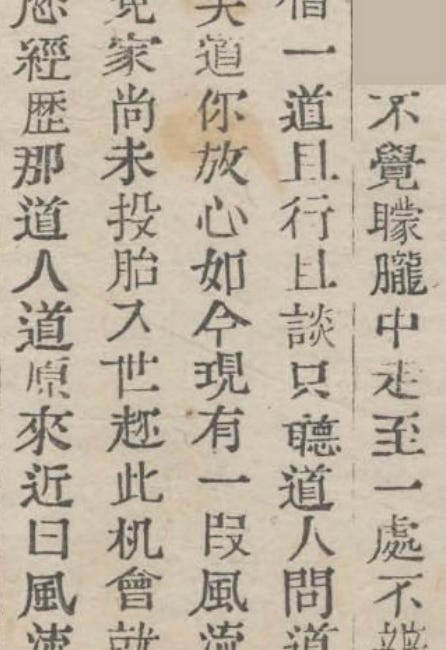 不覺矇朧中走至一處不辨
僧一道且行且談只聽道人問道
道你放心如今現有一段風流
冤家尚未投胎入世趂此机會就
經歴那道人道原來近日風流